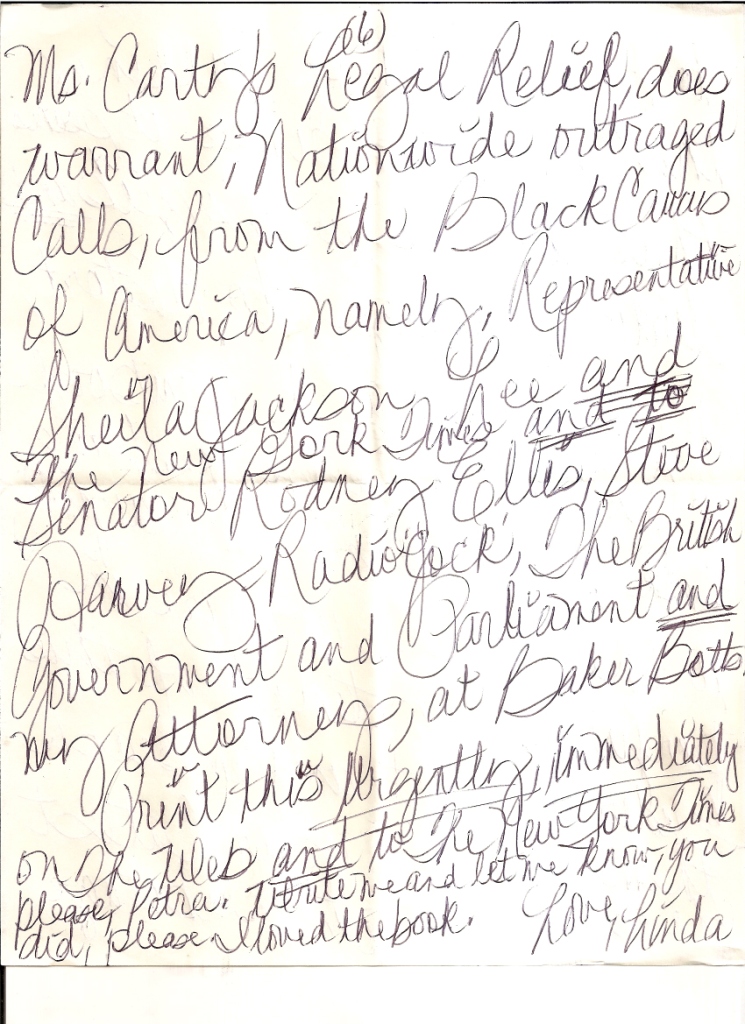 (6)
Ms. Carty's Legal Relief, does
warrant, Nationwide outraged
Calls, from the Black Caucus
of America, namely, Representative
Sheila Jackson Lee and
The New York Times and to
Senator Rodney Ellis, Steve
Harvey Radio Jock, The British
Government and Parliament and
my Attorneys, at Baker Botts.
"Print this" Urgently, immediately
on The Web and to The New York Times
please, Petra. Write me and let me know, you
did, please. I loved the book. Love, Linda